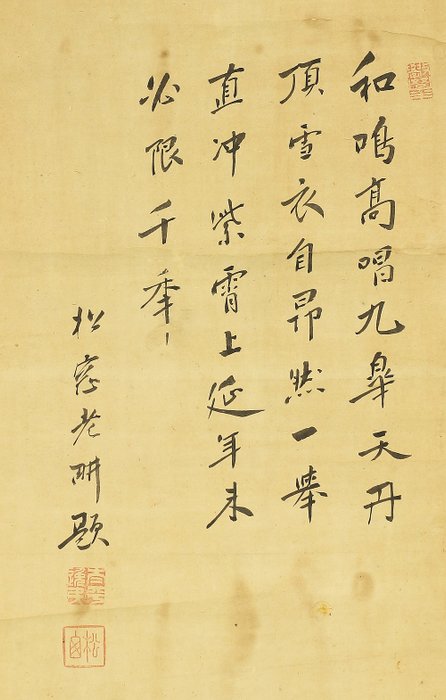 和鳴高唱九皐天丹
頂雪衣自昂然一舉
直冲紫霄上延年未
必限千秊
松窓老畊題